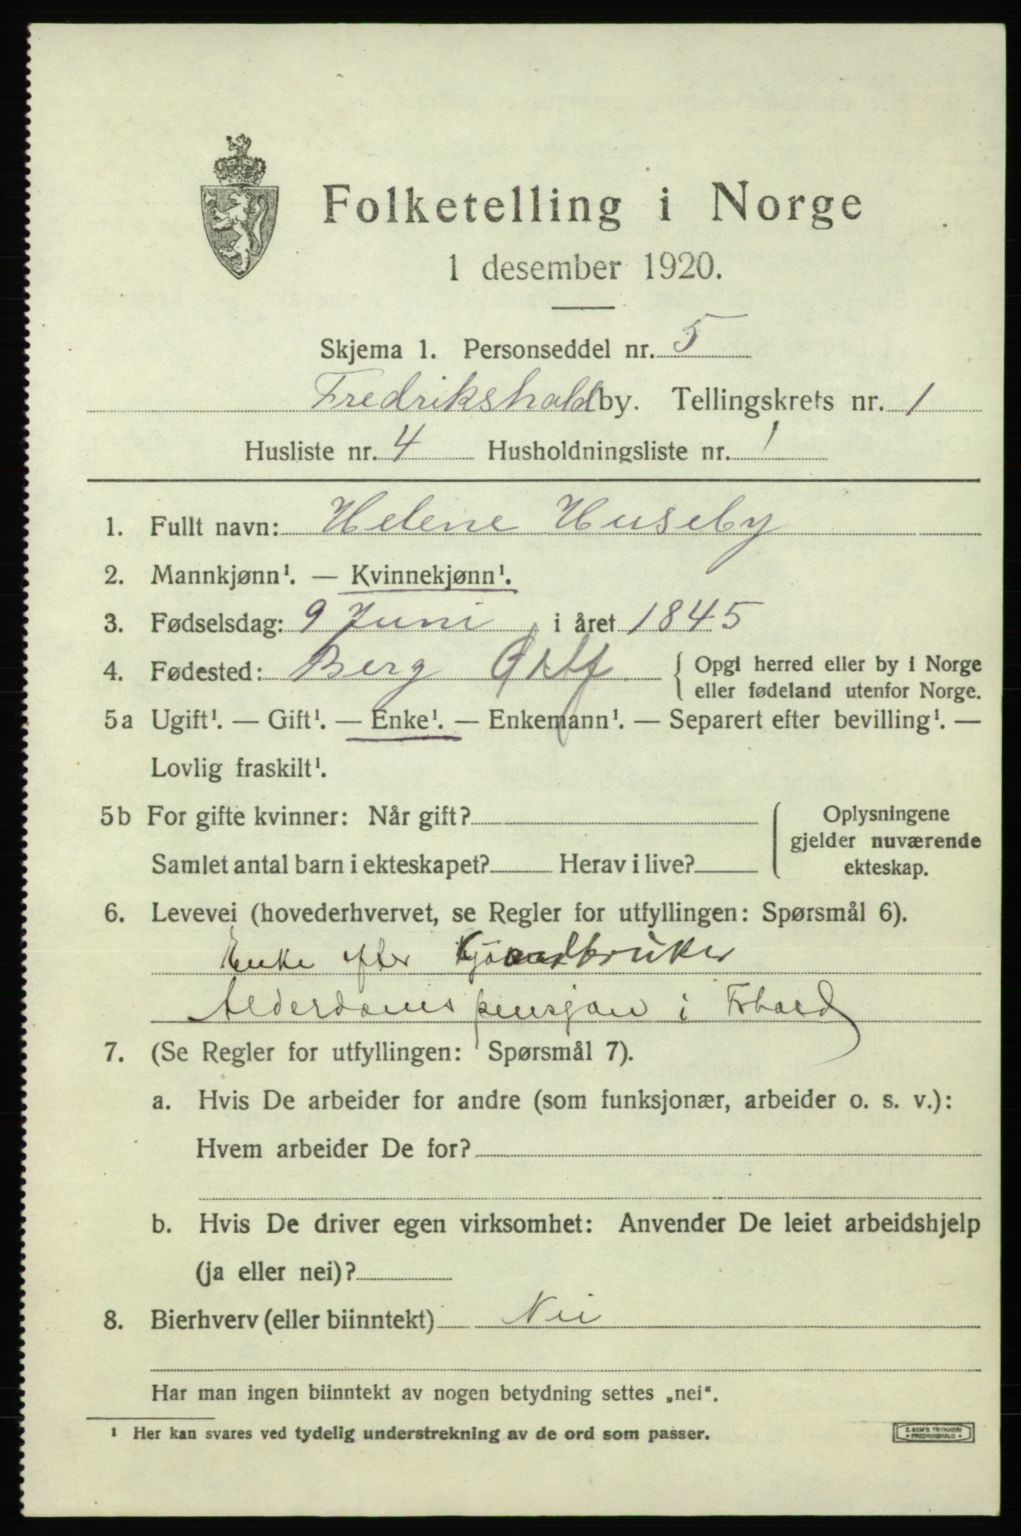 Folketelling i Norge
1 desember 1920.
Skjema 1. Personseddel nr. 5
Fredrikshald by. Tellingskrets nr. 1
Husliste nr. 4 Husholdningsliste nr. 1
1. Fullt navn: Helene Huseby
2. Mannkjønn¹. — Kvinnekjønn¹.
3. Fødselsdag: 9 Juni i året 1845
4. Fødested: Berg Østf { Opgi herred eller by i Norge
eller fødeland utenfor Norge.
5a Ugift¹. — Gift¹. — Enke¹. — Enkemann¹. — Separert efter bevilling¹. —
Lovlig fraskilt¹.
5b For gifte kvinner: Når gift?
Samlet antal barn i ekteskapet? Herav i live?
{ Oplysningene
gjelder nuværende
ekteskap.
6. Levevei (hovederhvervet, se Regler for utfyllingen: Spørsmål 6).
Enke efter
Alderdomspensjon i Frhald
7. (Se Regler for utfyllingen: Spørsmål 7).
a. Hvis De arbeider for andre (som funksjonær, arbeider o. s. v.):
Hvem arbeider De for?
b. Hvis De driver egen virksomhet: Anvender De leiet arbeidshjelp
(ja eller nei)?
8. Bierhverv (eller biinntekt) Nei
Har man ingen biinntekt av nogen betydning settes „nei“.
¹ Her kan svares ved tydelig understrekning av de ord som passer.
E. SEM'S TRYKKERI
FREDRIKSHALD